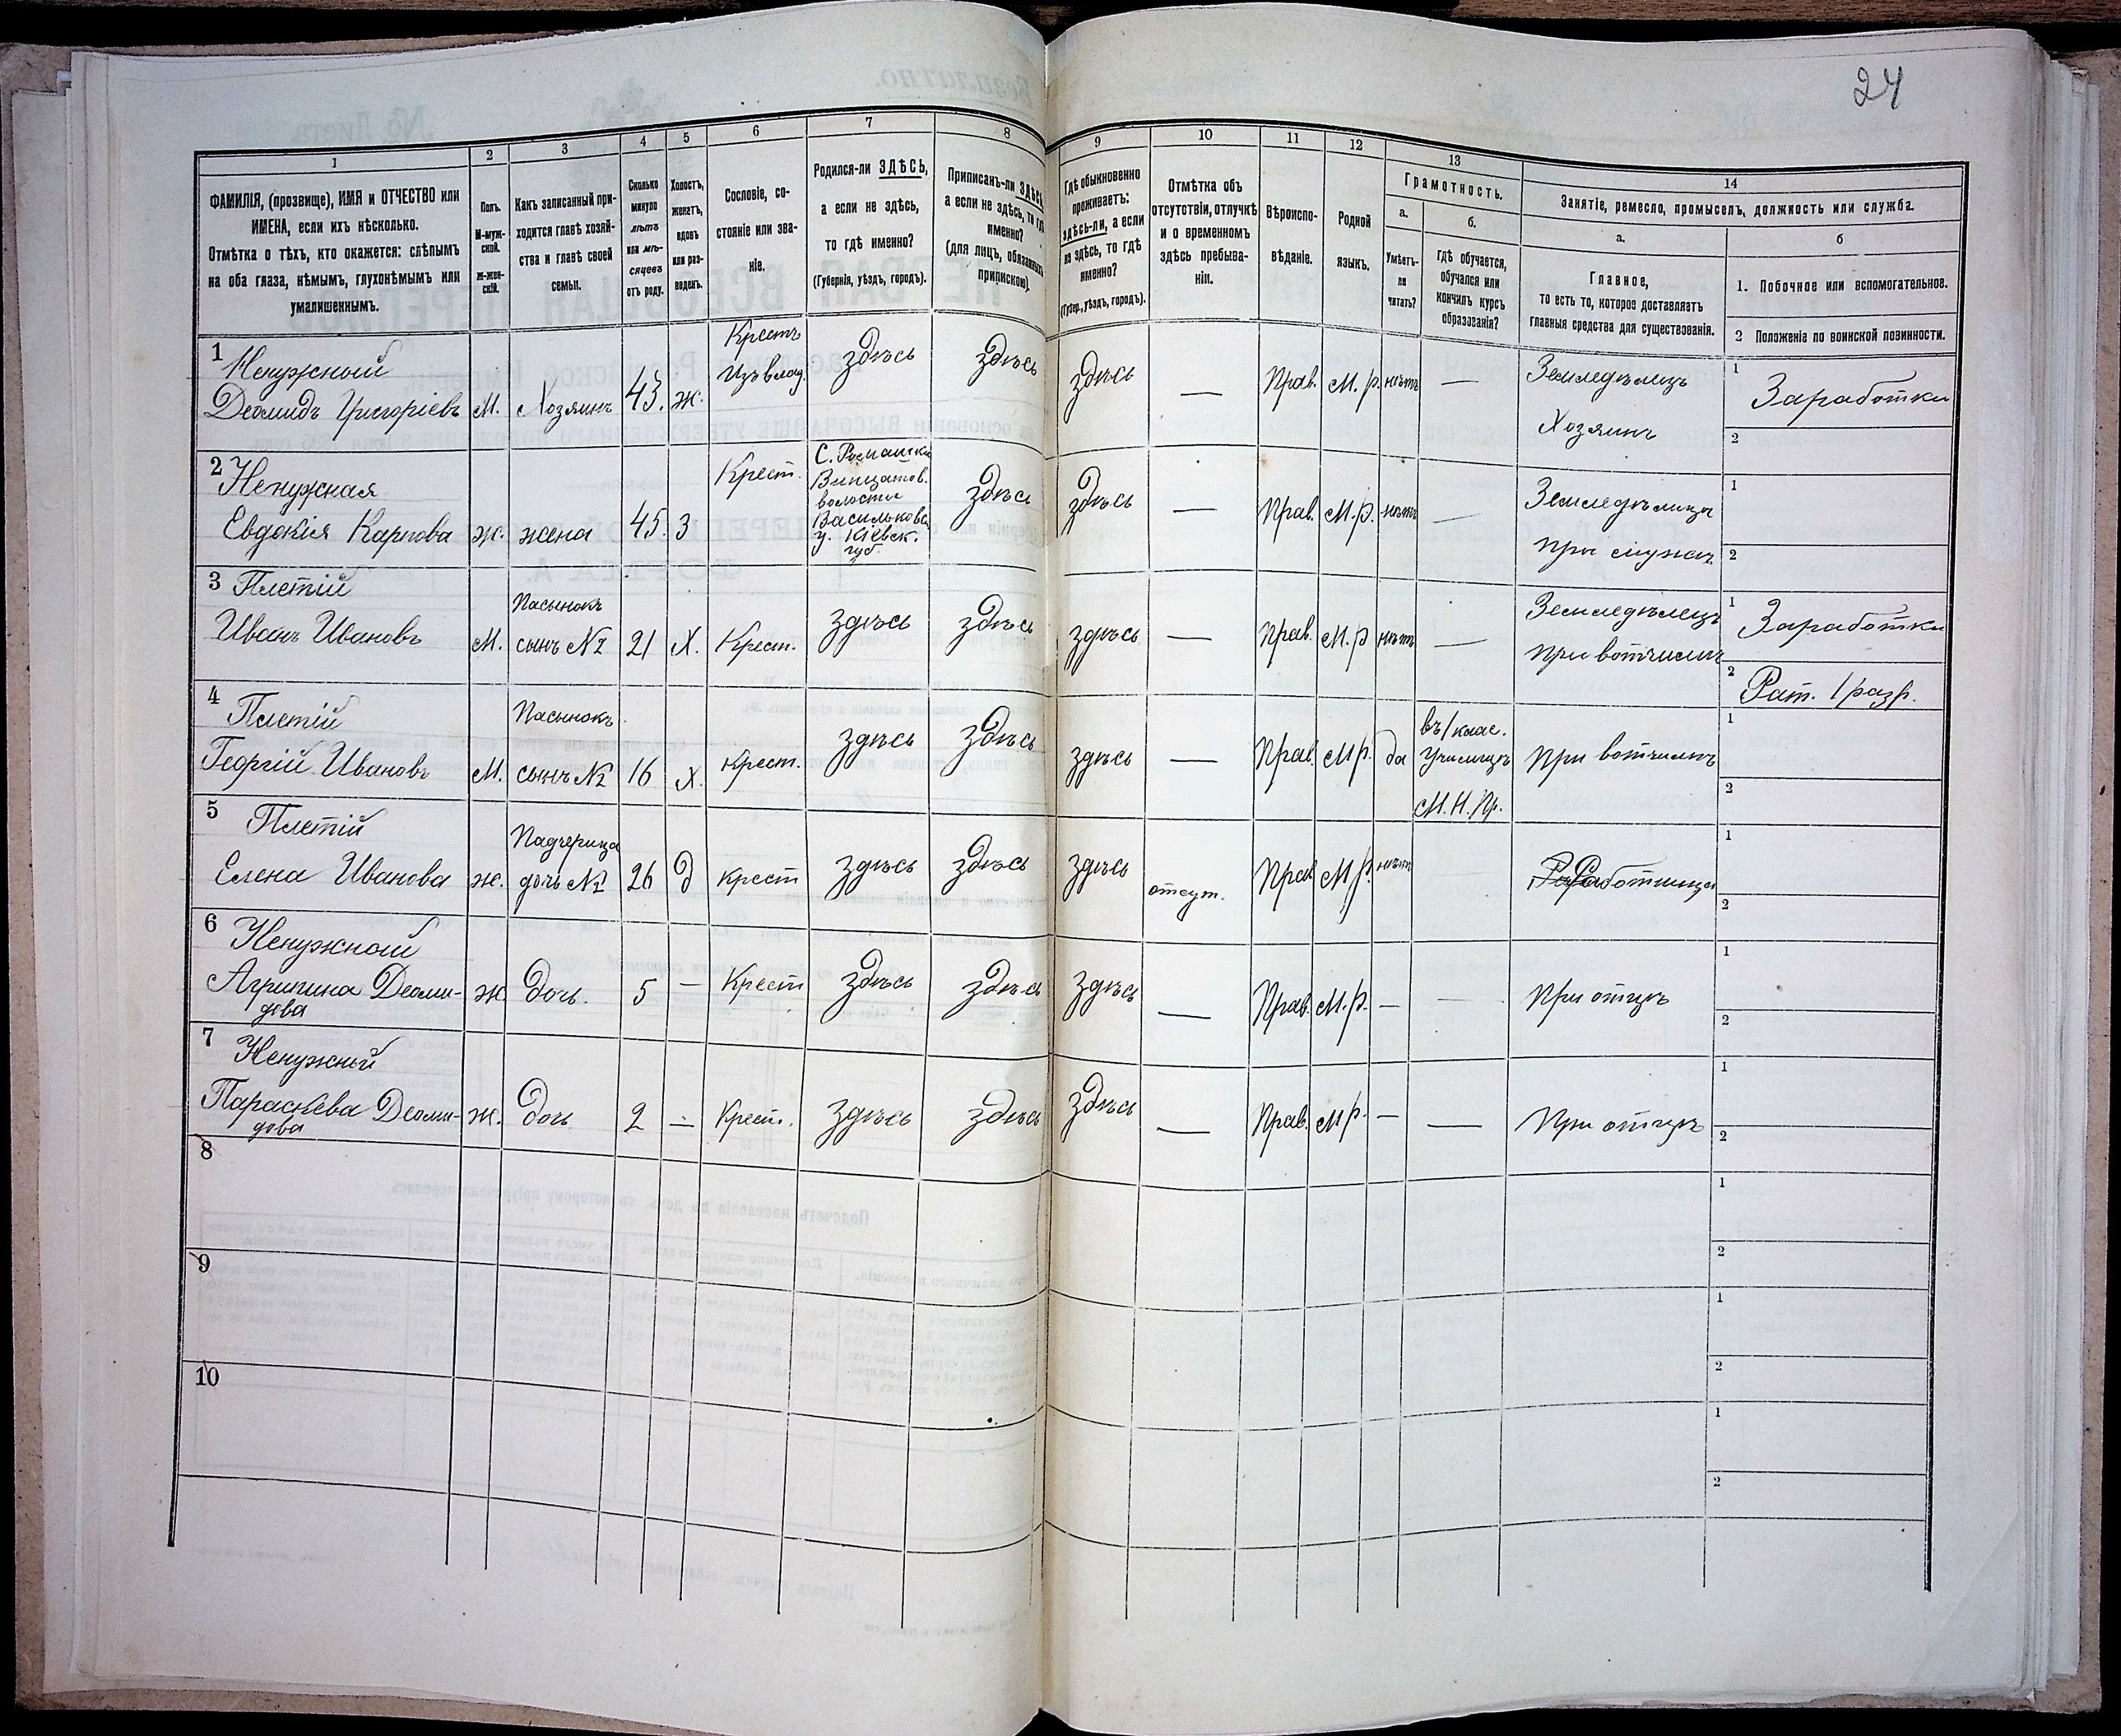 24
1
2
3
4
5
6
7
8
9
10
11
12
13
14
ФАМИЛІЯ, (прозвище), ИМЯ и ОТЧЕСТВО или
ИМЕНА, если ихъ нѣсколько.
Отмѣтка о тѣхъ, кто окажется: слѣпымъ
на оба глаза, нѣмымъ, глухонѣмымъ или
умалишеннымъ.
Полъ.
М-муж-
ской.
Ж-жен-
скій.
Какъ записанный при-
ходится главѣ хозяй-
ства и главѣ своей
семьи.
Сколько
минуло
лѣтъ
или мѣ-
сяцевъ
отъ роду.
Холостъ,
женатъ,
вдовъ
или раз-
веденъ.
Сословіе, со-
стояніе или зва-
ніе.
Родился-ли ЗДѢСЬ,
а если не здѣсь,
то гдѣ именно?
(Губернія, уѣздъ, городъ).
Приписанъ-ли ЗДѢСЬ,
а если не здѣсь, то гдѣ
именно?
(для лицъ, обязанныхъ
припискою).
Гдѣ обыкновенно
проживаетъ:
здѣсь-ли, а если
не здѣсь, то гдѣ
именно?
(Губер., уѣздъ, городъ).
Отмѣтка объ
отсутствіи, отлучкѣ
и о временномъ
здѣсь пребыва-
ніи.
Вѣроиспо-
вѣданіе.
Родной
языкъ.
Грамотность.
а.
Умѣетъ-
ли
читать?
б.
Гдѣ обучается,
обучался или
кончилъ курсъ
образованія?
Занятіе, ремесло, промыселъ, должность или служба.
а.
Главное,
то есть то, которое доставляетъ
главныя средства для существованія.
б
1. Побочное или вспомогательное.
2 Положеніе по воинской повинности.
1 Ненужной
Деомидъ Григоріевъ
М.
Хозяинъ
43.
ж.
Крестъ
Изъ влад.
здѣсь
здѣсь
здѣсь
—
Прав.
М. р.
нѣтъ
—
Земледѣлецъ
Хозяинъ
1 Заработки
2
2 Ненужная
Евдокія Карпова
ж.
жена
45.
З
Крест.
С. Ромашки
Винцатов.
волости
Васильковс.
у. Кіевск.
губ.
здѣсь
здѣсь
—
Прав.
М. р.
нѣтъ
—
Земледѣлица
1
2
3 Плетій
Иванъ Ивановъ
М.
Пасынокъ
сынъ №2
21
Х.
Крест.
здѣсь
здѣсь
здѣсь
—
Прав.
М. р
нѣтъ
—
Земледѣлецъ
при вотчимѣ
1 Заработки
2 Рат. 1 разр.
4 Плетій
Георгій Ивановъ
М.
Пасынокъ
сынъ №2
16
Х.
Крест.
здѣсь
здѣсь
здѣсь
—
Прав.
М р.
да
въ 1 клас.
Училищѣ
М. Н. Пр.
При вотчимѣ
1
2
5 Плетій
Елена Иванова
ж.
Падчерица
дочь №2
26
д
Крест
здѣсь
здѣсь
здѣсь
отсут.
Прав
М р.
нѣтъ
Работница
1
2
6 Ненужной
Агрипина Деоми-
дова
ж.
дочь.
5
—
Крест
здѣсь
здѣсь
здѣсь
—
Прав.
М. р.
—
—
При отцѣ
1
2
7 Ненужной
Параскева Деоми-
дова
ж.
дочь
2
—
Крест.
здѣсь
здѣсь
здѣсь
—
Прав.
М р.
—
—
При отцѣ
1
2
8
1
2
9
1
2
10
1
2